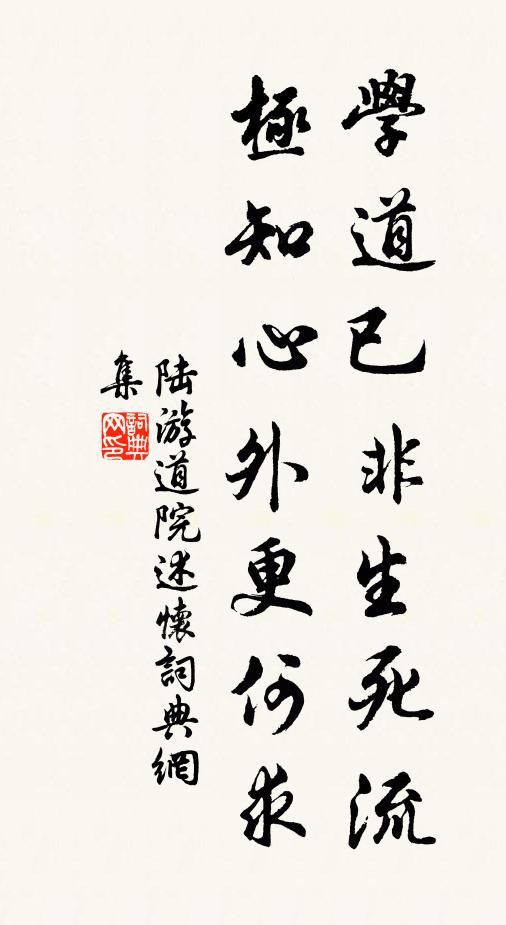 學道已非生死流
極知心外更何求
陆游道院述懷詞典網
集
詞典
网印